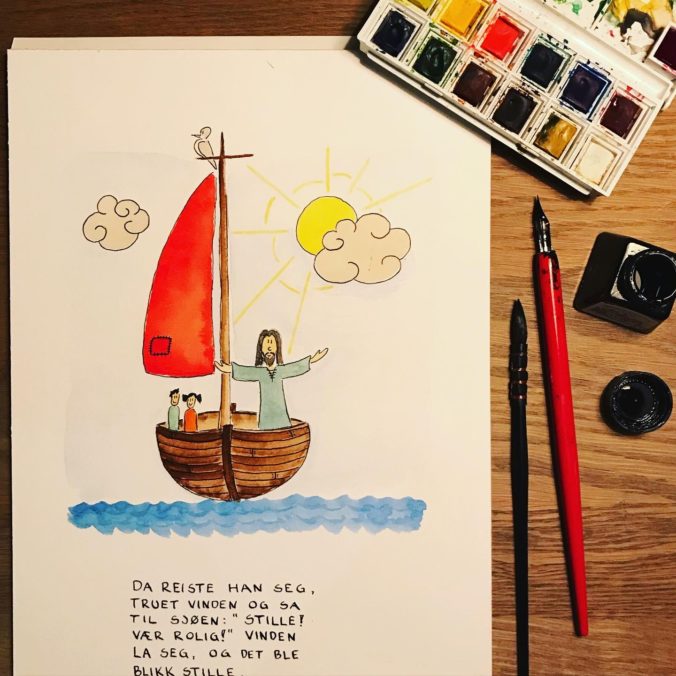 DA REISTE HAN SEG,
TRUET VINDEN OG SA
TIL SJØEN: "STILLE!
VÆR ROLIG!" VINDEN
LA SEG, OG DET BLE
BLIKK STILLE.